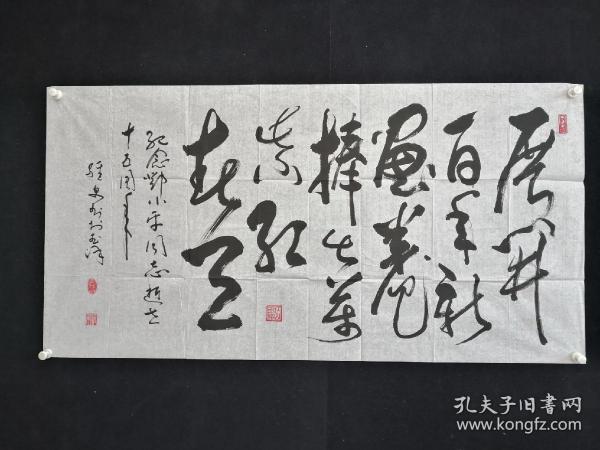 展开
百年新
画卷
捧出万
紫红
春天
纪念邓小平同志逝世
十五周年
孔夫子旧书网
www.kongfz.com